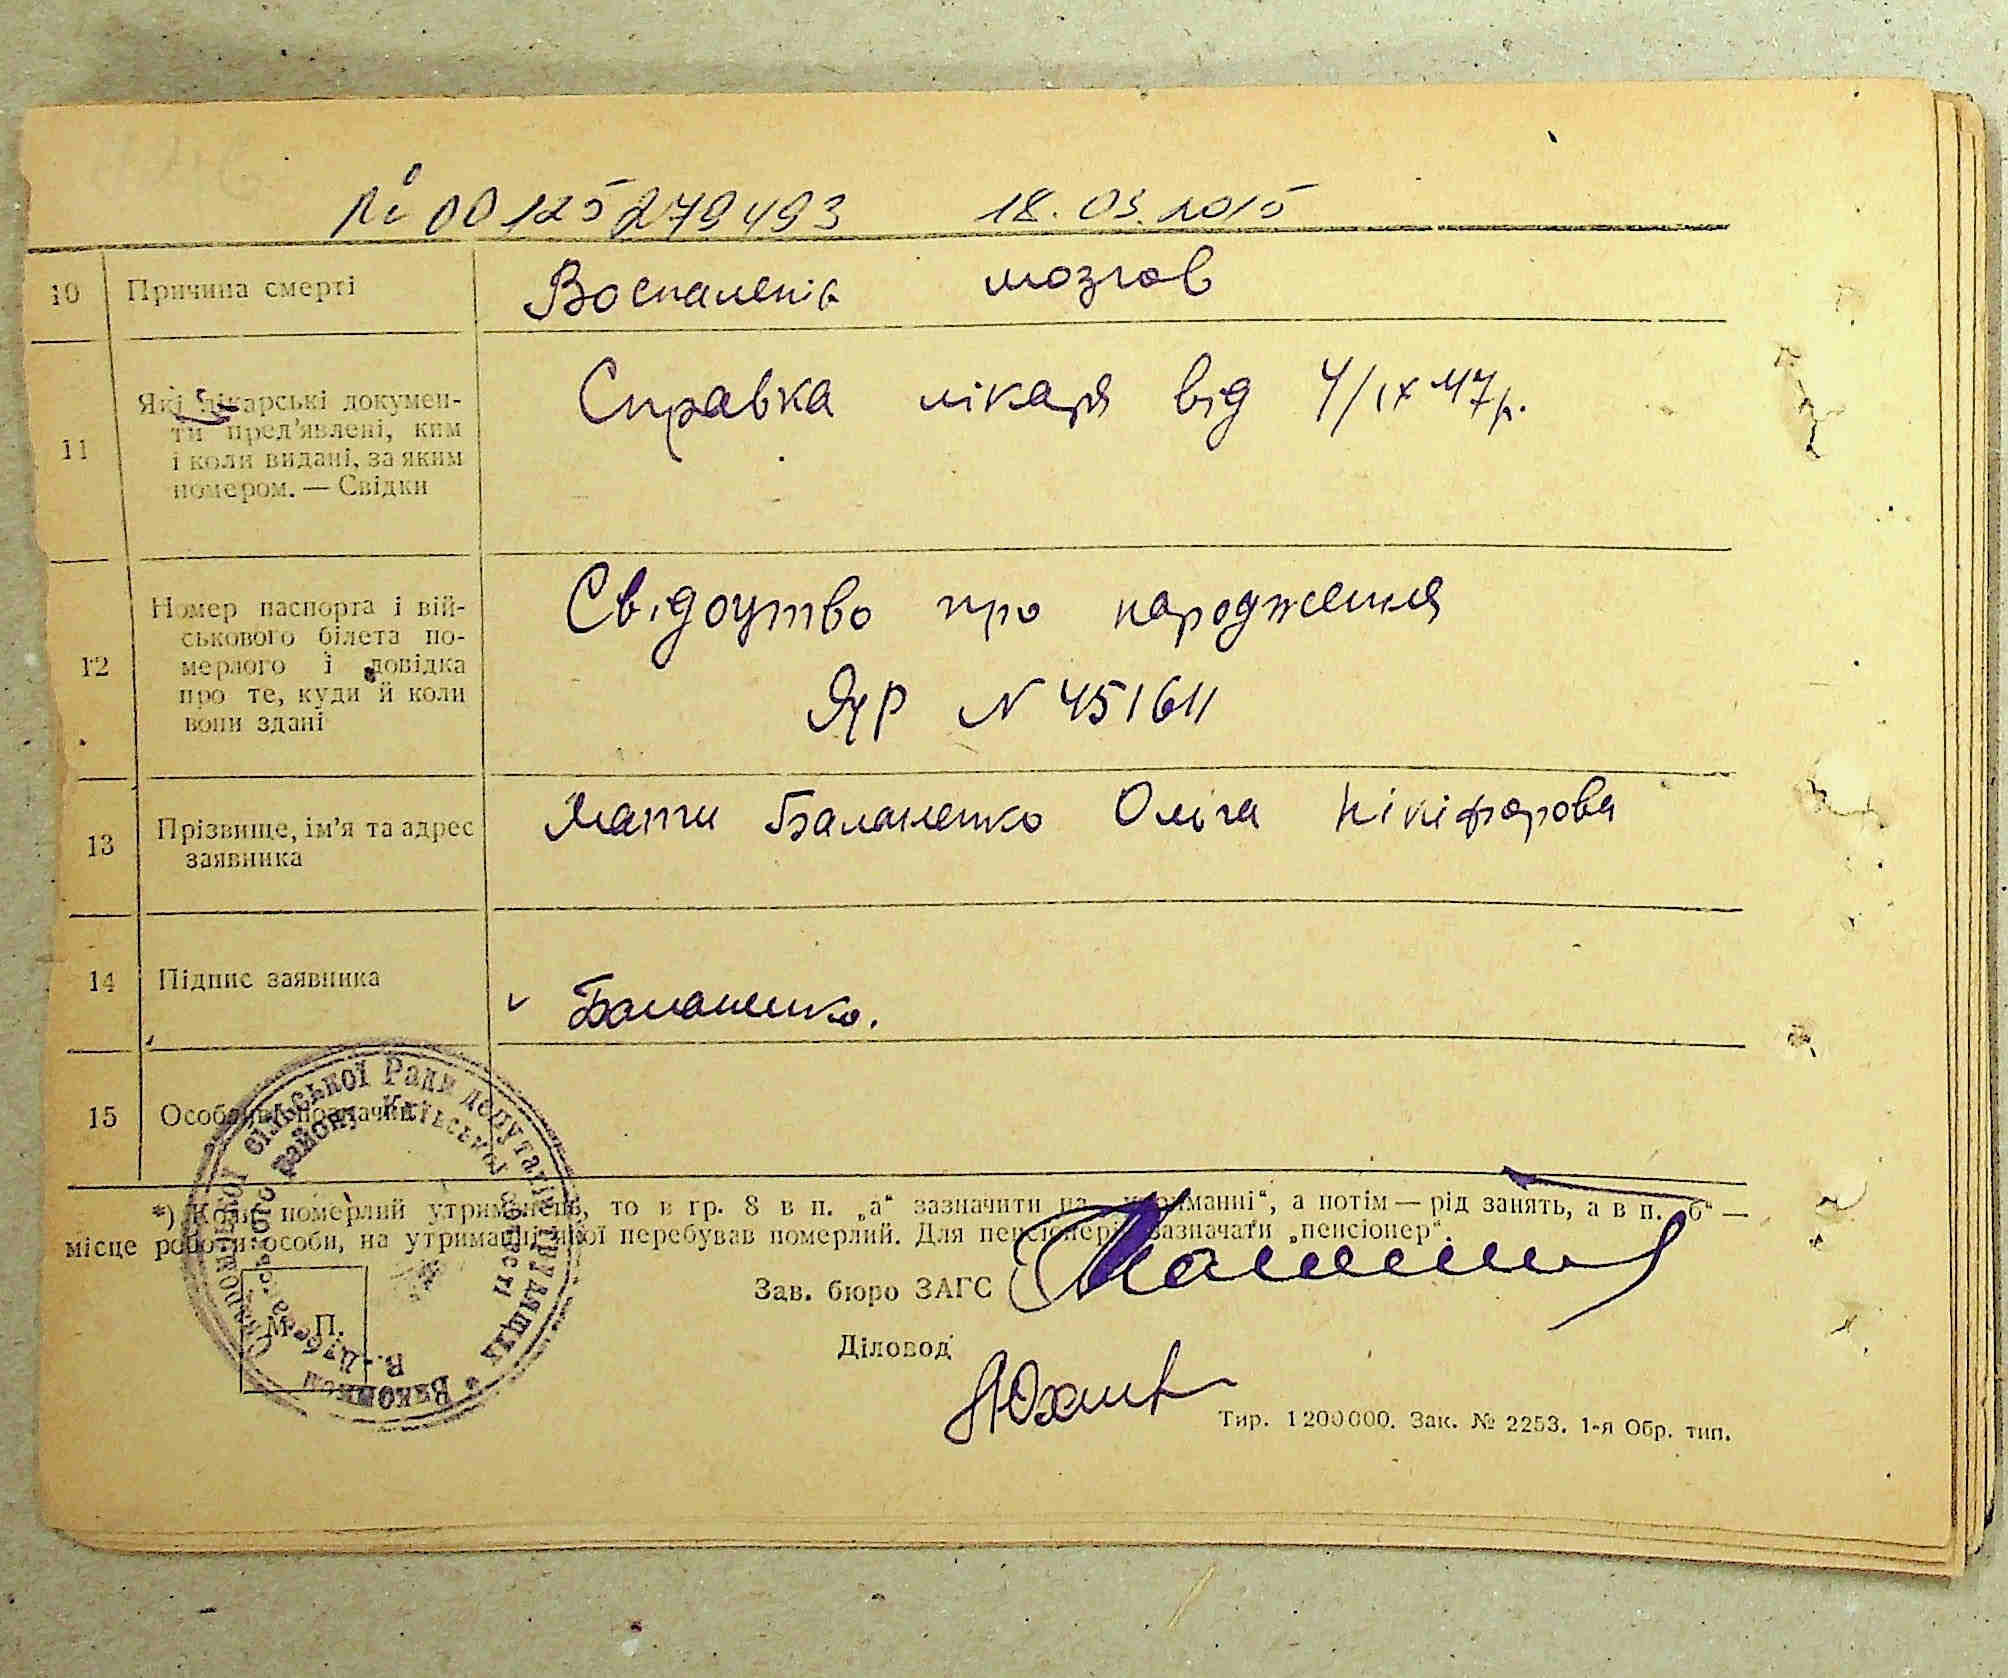 № 00125279493 18.03.2015
10 Причина смерті Воспаленія мозгов
11 Які лікарські докумен-
ти пред'явлені, ким
і коли видані, за яким
номером. — Свідки
Справка лікаря від 4/IX 47р.
12 Номер паспорта і вій-
ськового білета по-
мерлого і довідка
про те, куди й коли
вони здані
Свідоцтво про народження
ЯЧР N 451611
13 Прізвище, ім'я та адрес
заявника
Мати Баланенко Ольга Нікіфорова
14 Підпис заявника
v Баланенко.
15 Особливі позначки
*) Коли померлий утриманець, то в гр. 8 в п. „а“ зазначити на „утриманні“, а потім — рід занять, а в п. „б“ —
місце роботи особи, на утриманні якої перебував померлий. Для пенсіонерів зазначати „пенсіонер“.
Зав. бюро ЗАГС
М. П.
Діловод
Тир. 1200000. Зак. № 2253. 1-я Обр. тип.
Виконком сільської Ради депутатів трудящих
району Київської області